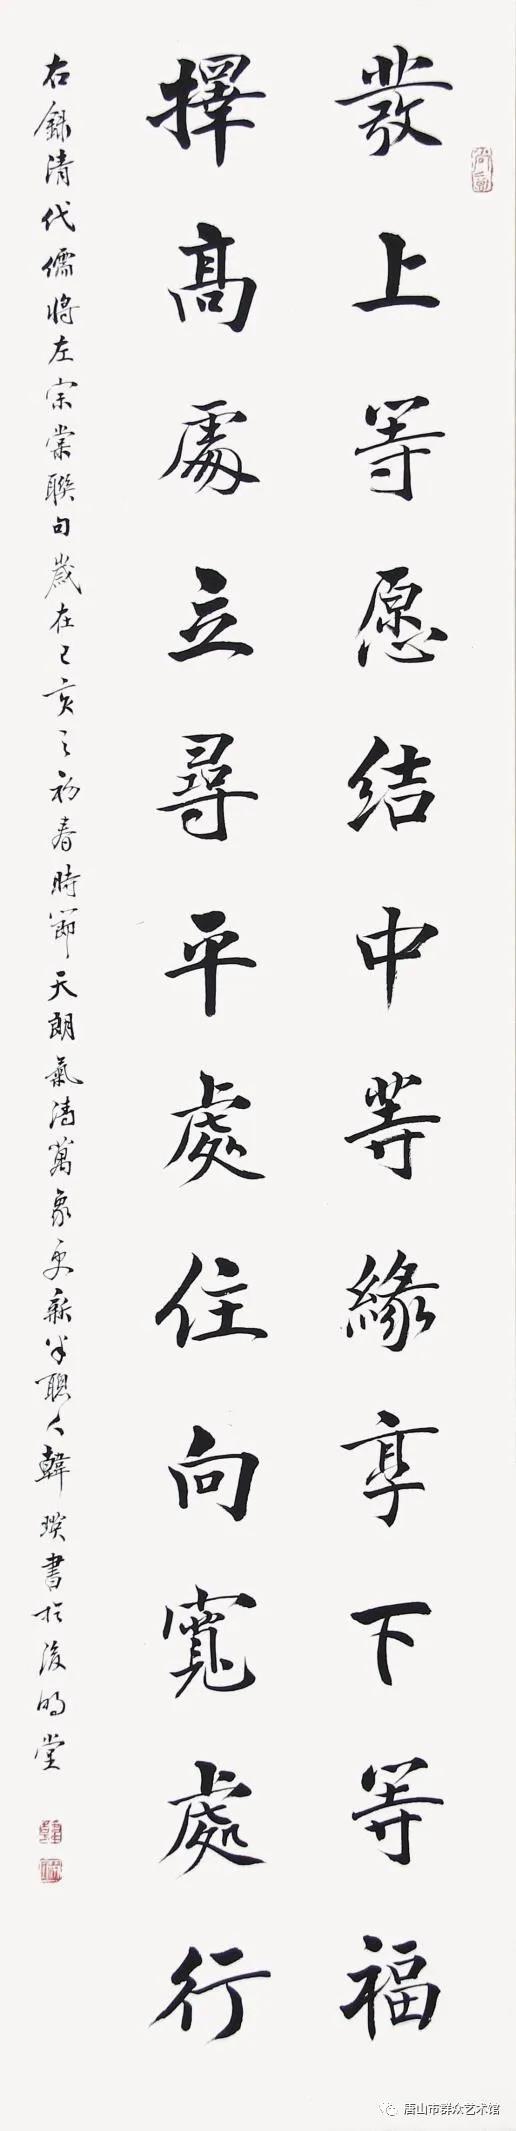 發上等愿结中等緣享下等福
擇高處立尋平處住向寬處行
右錄清代儒將左宗棠聯句歲在己亥之初春時節天朗氣清萬象更新半聰人韓璞書於明堂
唐山市群众艺术馆